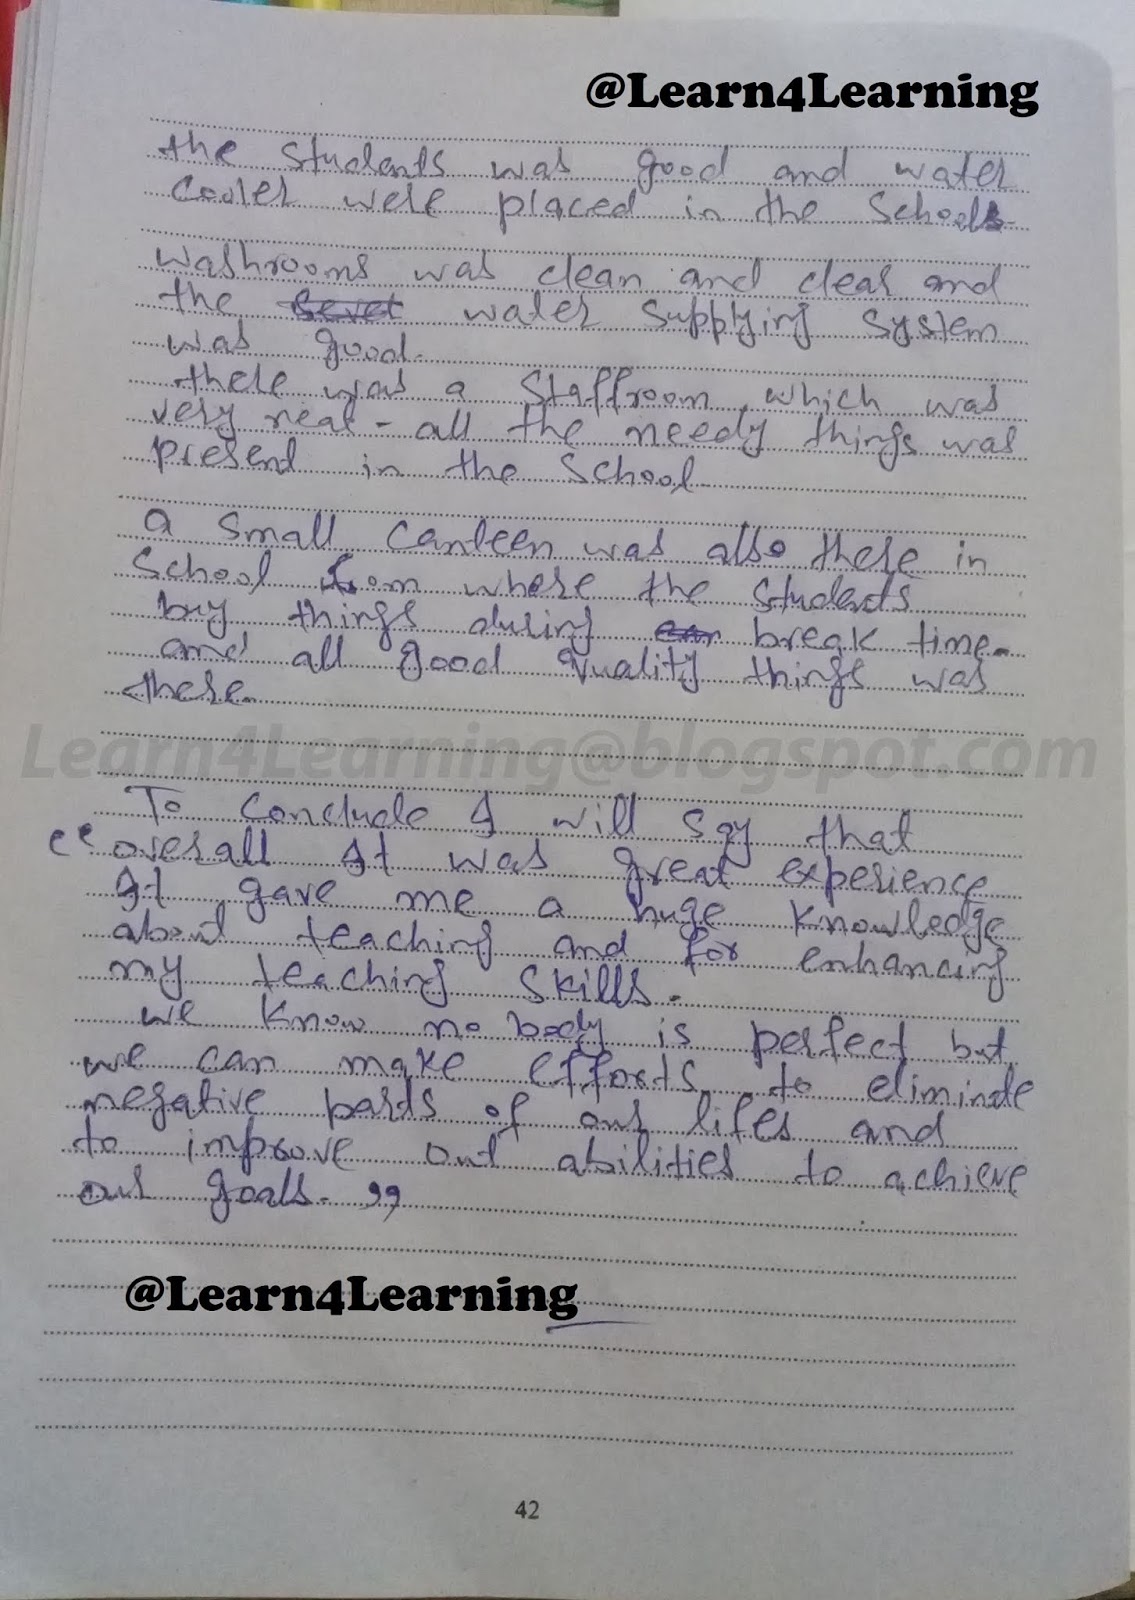 @Learn4Learning
the students was good and water
cooler were placed in the schools.
washrooms was clean and clear and
the water supplying system
was good.
there was a staffroom which was
very neat - all the needy things was
present in the school.
a small canteen was also there in
school from where the students
buy things during break time.
and all good quality things was
there.
Learn4Learning@blogspot.com
To conclude I will say that
“ overall It was great experience
It gave me a huge knowledge
about teaching and for enhancing
my teaching skills.
we know no body is perfect but
we can make efforts to eliminate
negative parts of our lifes and
to improve out abilities to achieve
our goals. ”
@Learn4Learning
42